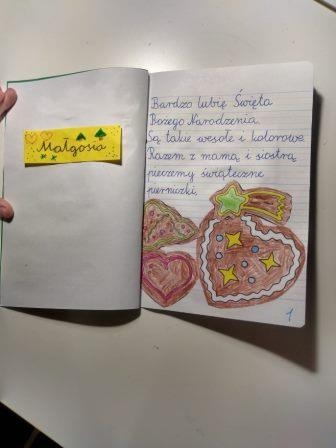 Małgosia
Bardzo lubię Święta
Bożego Narodzenia.
Są takie wesołe i kolorowe.
Razem z mamą i siostrą
pieczemy świąteczne
pierniczki.
1